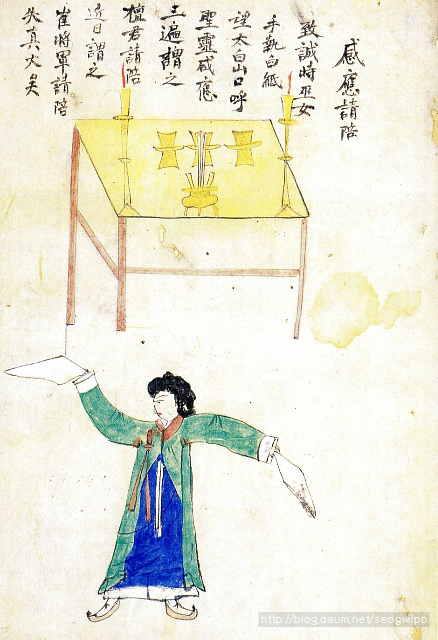 感應請陪
致誠時巫女
手執白紙
望太白山口呼
聖靈感應
三遍謂之
檀君請陪
近日謂之
崔將軍請陪
失真矣
http://blog.daum.net/seogwipo